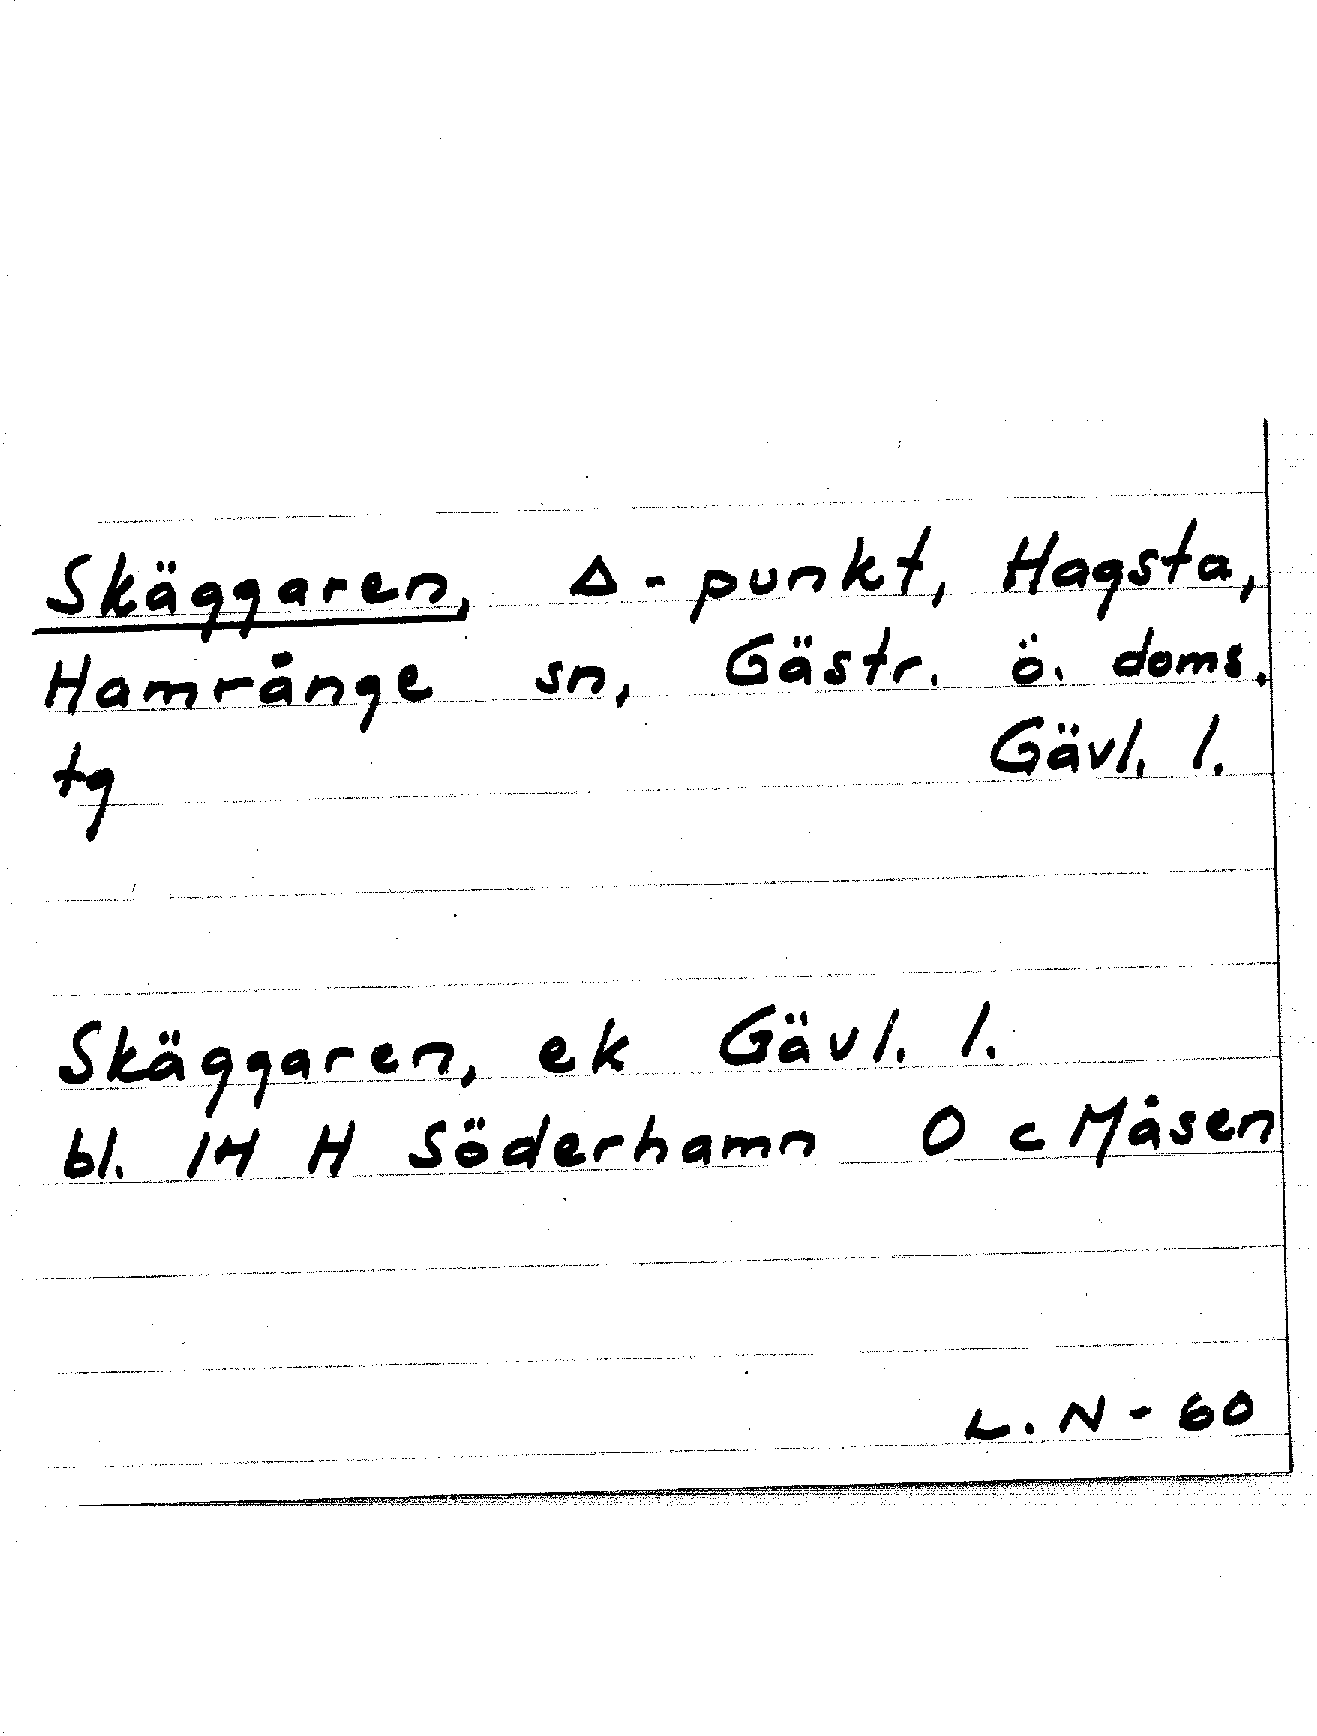 Skäggaren, Δ-punkt, Hagsta,
Hamrånge sn, Gästr. ö. doms.
tg Gävl. l.
Skäggaren, ek Gävl. l.
bl. 14 H Söderhamn 0 c Måsen
L. N - 60